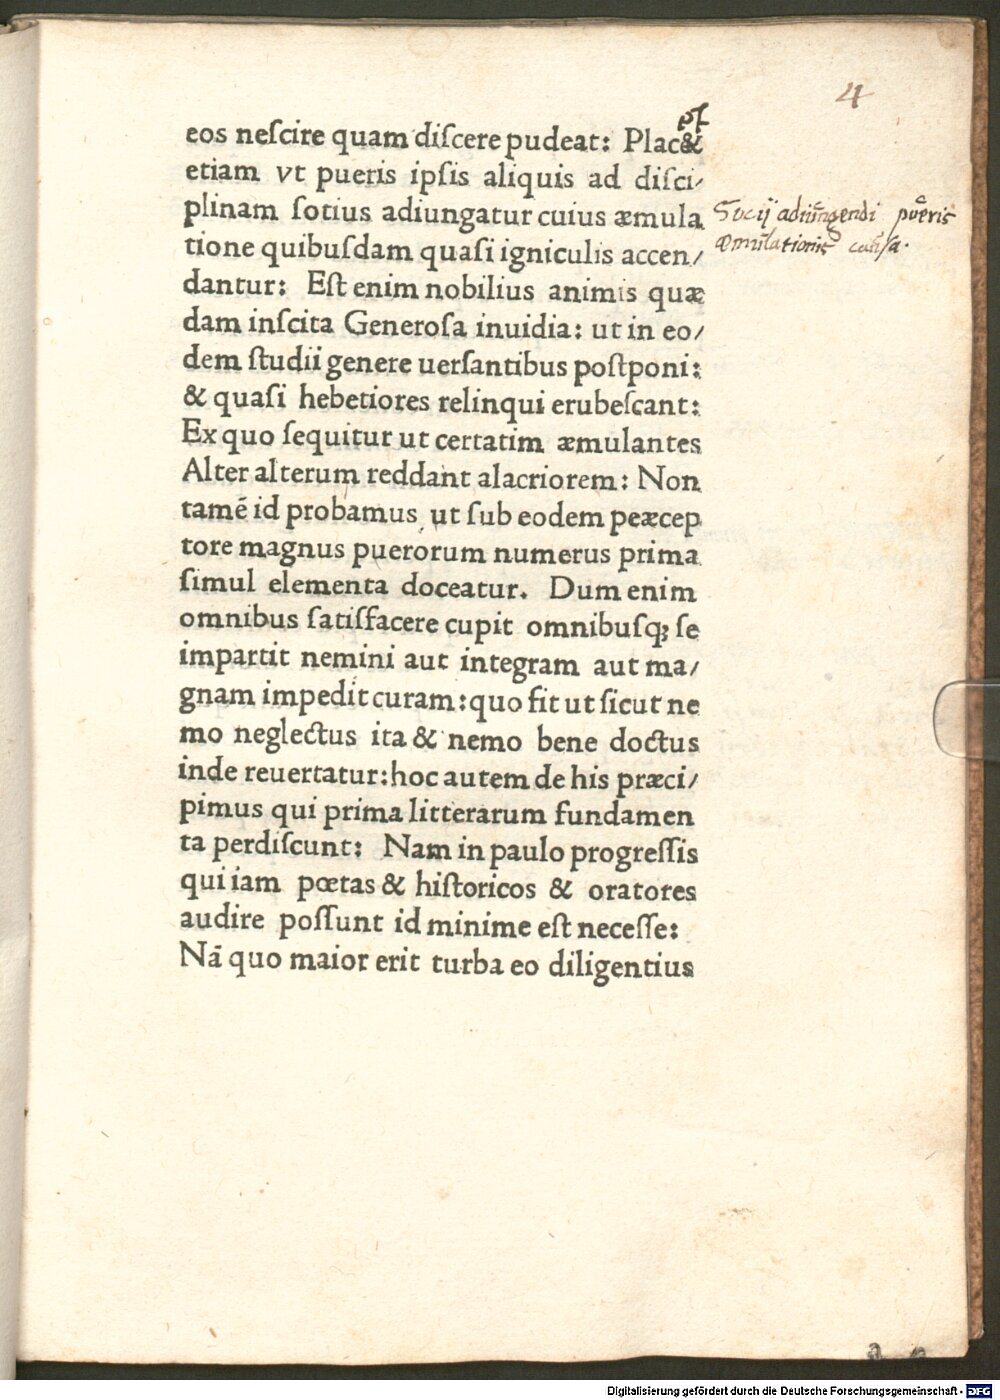 4
eos neſcire quam diſcere pudeat: Plac&
etiam vt pueris ipſis aliquis ad diſci/
plinam ſotius adiungatur cuius æmula
tione quibuſdam quaſi igniculis accen/
dantur: Eſt enim nobilius animis quæ
dam inſcita Generoſa inuidia: ut in eo/
dem ſtudii genere uerſantibus poſtponi:
& quaſi hebetiores relinqui erubeſcant:
Ex quo ſequitur ut certatim æmulantes
Alter alterum reddant alacriorem: Non
tamē id probamus ut ſub eodem peæcep
tore magnus puerorum numerus prima
ſimul elementa doceatur. Dum enim
omnibus ſatiſfacere cupit omnibuſq; ſe
impartit nemini aut integram aut ma/
gnam impedit curam: quo fit ut ſicut ne
mo neglectus ita & nemo bene doctus
inde reuertatur: hoc autem de his præci/
pimus qui prima litterarum fundamen
ta perdiſcunt: Nam in paulo progreſſis
qui iam pœtas & hiſtoricos & oratores
audire poſſunt id minime eſt neceſſe:
Nā quo maior erit turba eo diligentius
Socij adiungendi pueris
æmulationis causa.
Digitalisierung gefördert durch die Deutsche Forschungsgemeinschaft - DFG